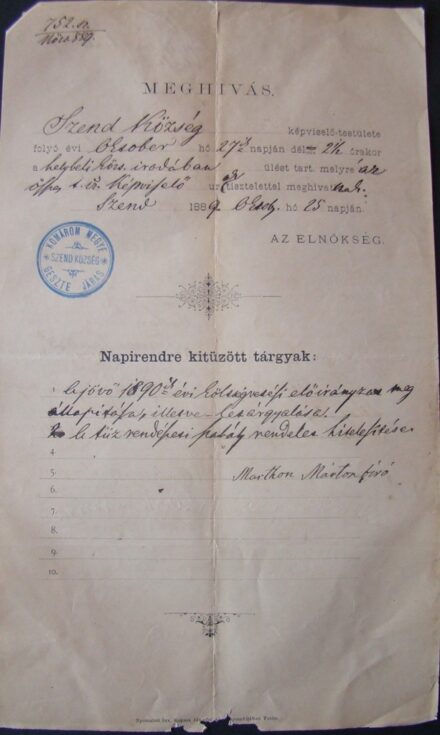 752. sz.
889.
MEGHIVÁS.
Szend Község képviselő-testülete
folyó évi Október hó 27én napján dél 2½ órakor
a helybeli közs. irodában ülést tart, melyre az
össz. t. cz. Képviselő ur tisztelettel meghivat
Szend 1889. Októb. hó 25 napján.
AZ ELNÖKSÉG.
KOMÁROM MEGYE
SZEND KÖZSÉG
GESZTE JÁRÁS
Napirendre kitüzött tárgyak:
1. A jövő 1890ik évi költségvetési előirányzat meg
állapitása, illetve letárgyalása.
2. A tüz rendészeti szabály rendelet hitelesitése
4.
5. Marthon Márton biró
6.
7.
8.
9.
10.